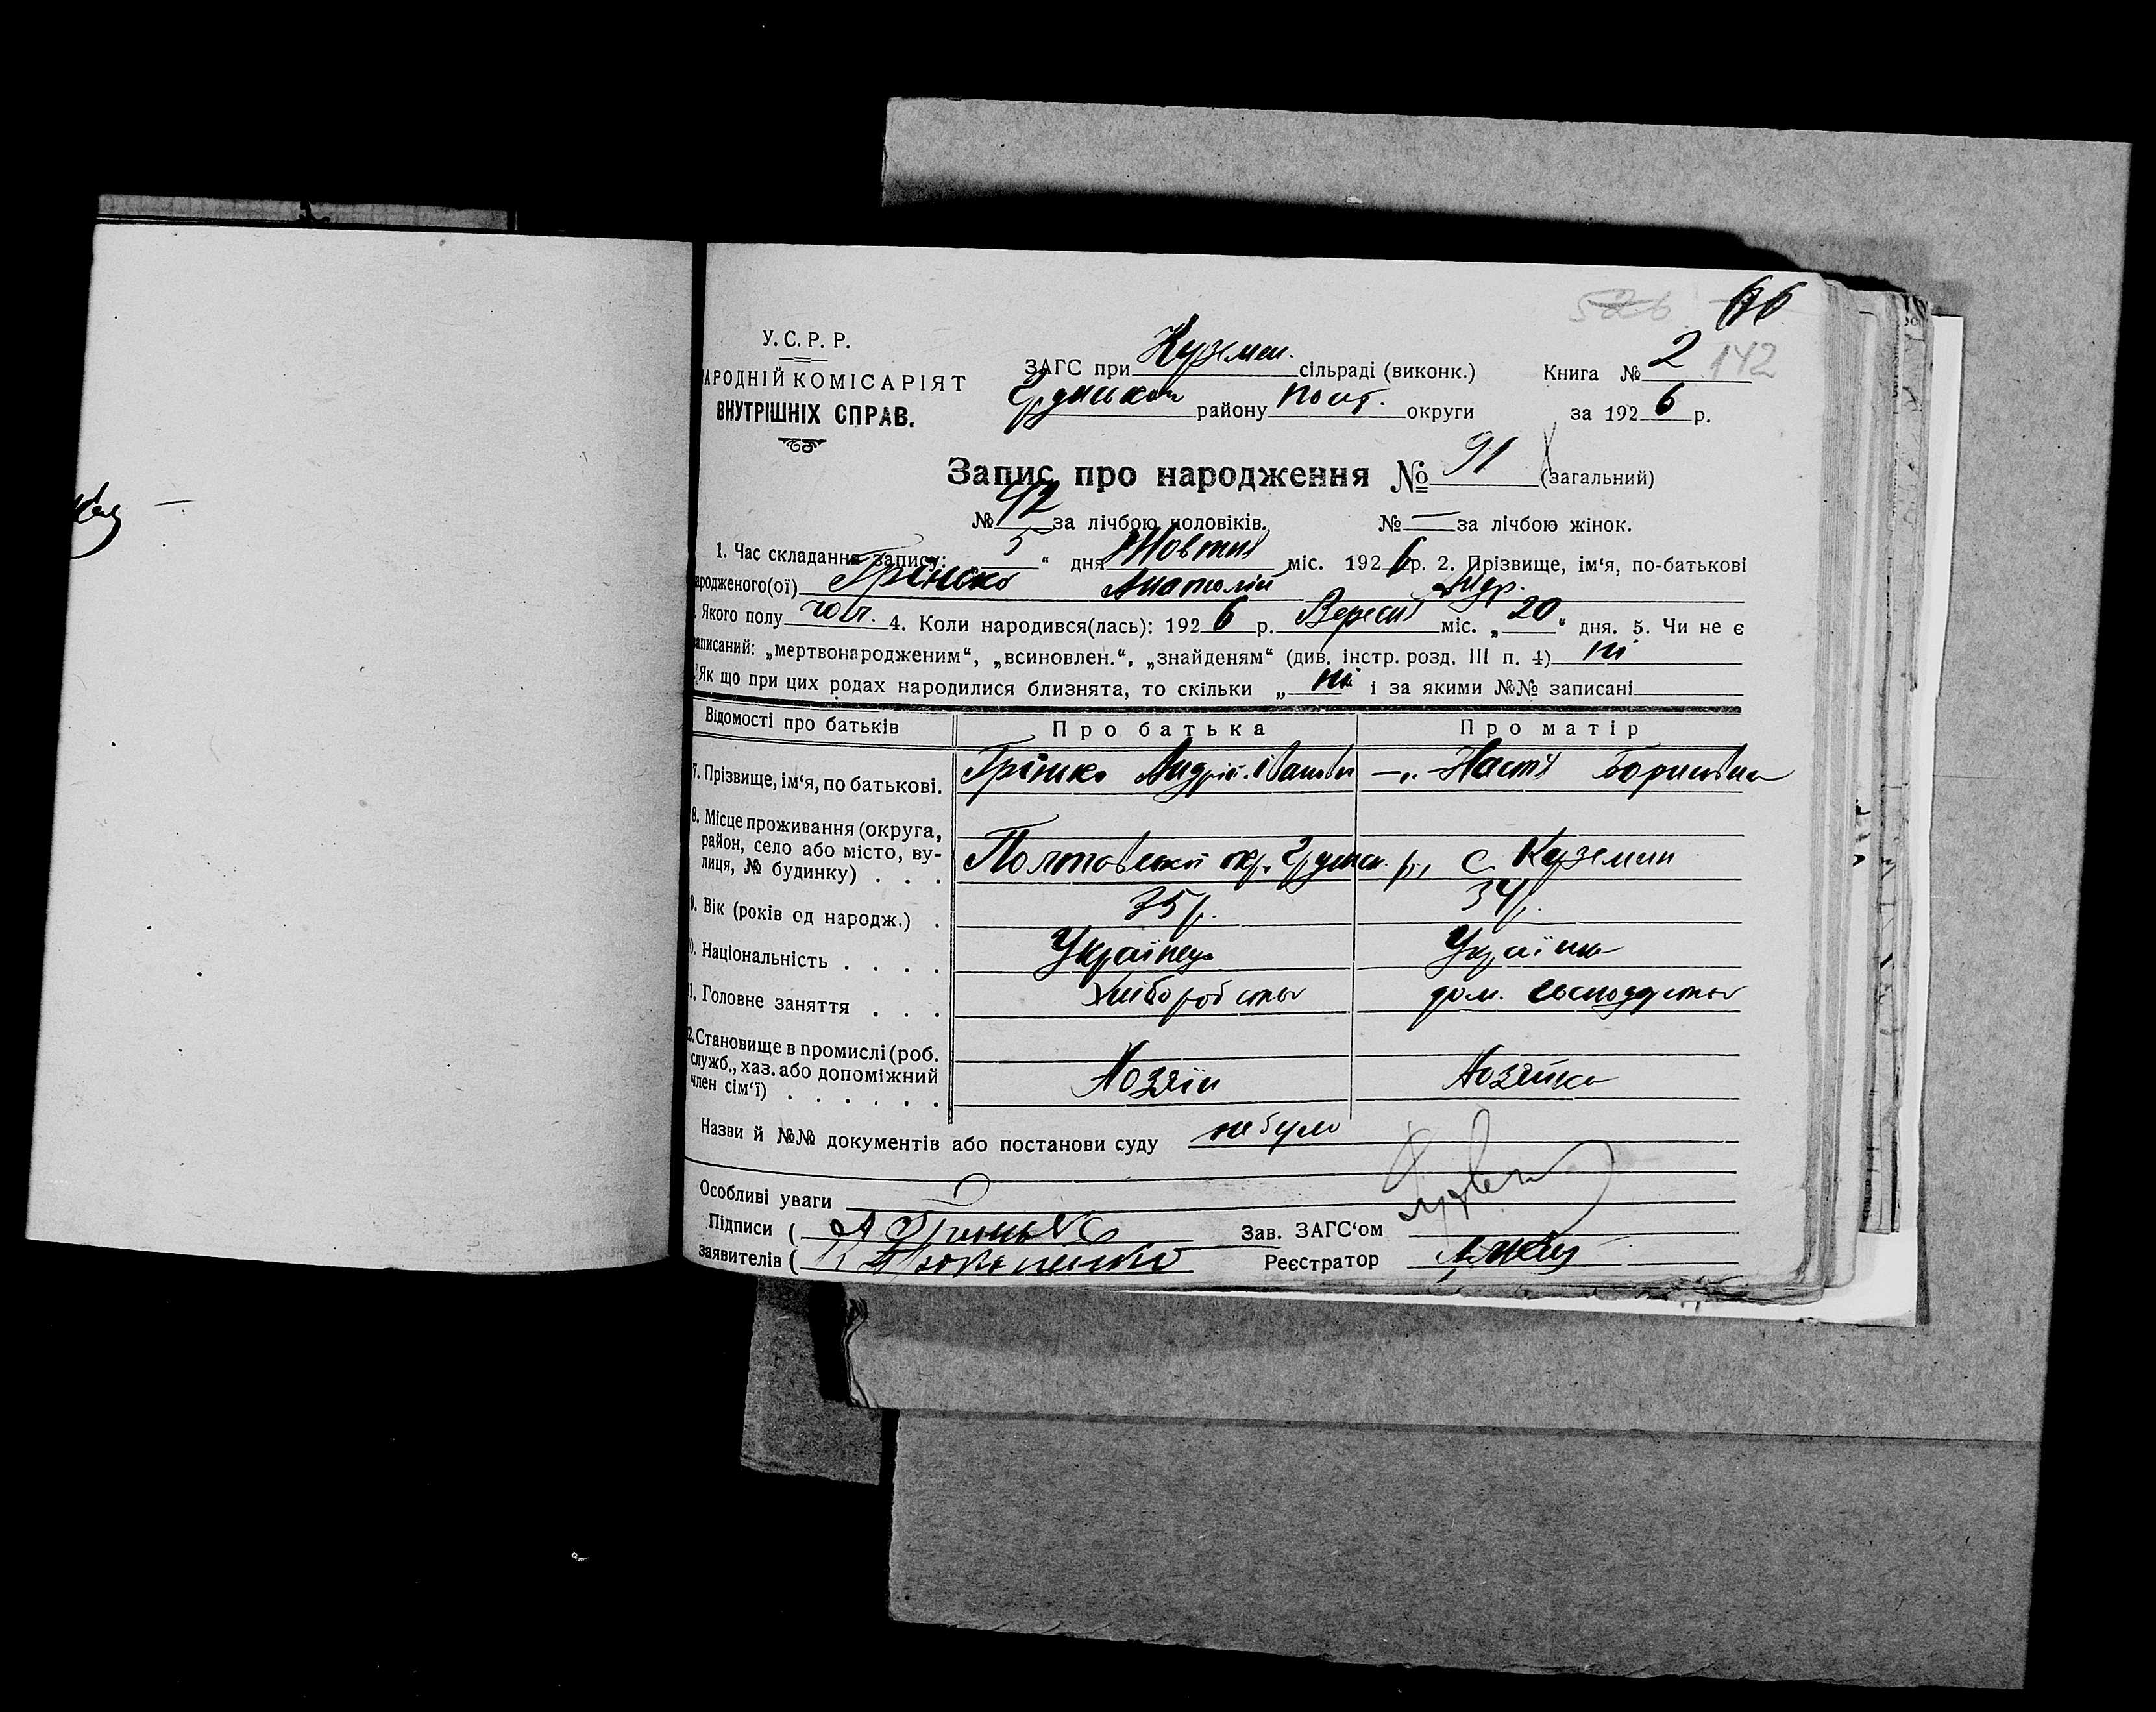 526 66
У. С. Р. Р.
АРОДНІЙ КОМІСАРІЯТ
ВНУТРІШНІХ СПРАВ.
ЗАГС при Куземен. сільраді (виконк.)
району Полт. округи
Книга № 2 142
за 1926 р.
Запис про народження № 91 (загальний)
№ 42 за лічбою чоловіків. № — за лічбою жінок.
1. Час складання запису: 5 “ дня Жовтня міс. 1926 р. 2. Прізвище, ім‘я, по-батькові
ародженого(ої) Грінько Анатолій Андр.
. Якого полу чол. 4. Коли народився(лась): 1926 р. Вересня міс. „ 20 “ дня. 5. Чи не є
аписаний: „мертвонародженим“, „всиновлен.“, „знайденям“ (див. інстр. розд. III п. 4) ні
Як що при цих родах народилися близнята, то скільки „ ні і за якими №№ записані
Відомості про батьків Про батька Про матір
7. Прізвище, ім‘я, по батькові. Грінько Андрій Іванов —„— Настя Борисівна
8. Місце проживання (округа,
район, село або місто, ву-
лиця, № будинку) . . . Полтовської окр. Грунськ. р., с. Куземин
9. Вік (років од народж.) . 35 р. 34 р.
0. Національність . . . . Українець Українка
1. Головне заняття . . . Хліборобство дом. господарство
2. Становище в промислі (роб.
служб., хаз. або допоміжний
член сім‘ї) . . . . . . Хозяїн Хозяйка
Назви й №№ документів або постанови суду не було
Особливі уваги
Підписи ( А Гринько Зав. ЗАГС‘ом
заявителів ( Реєстратор